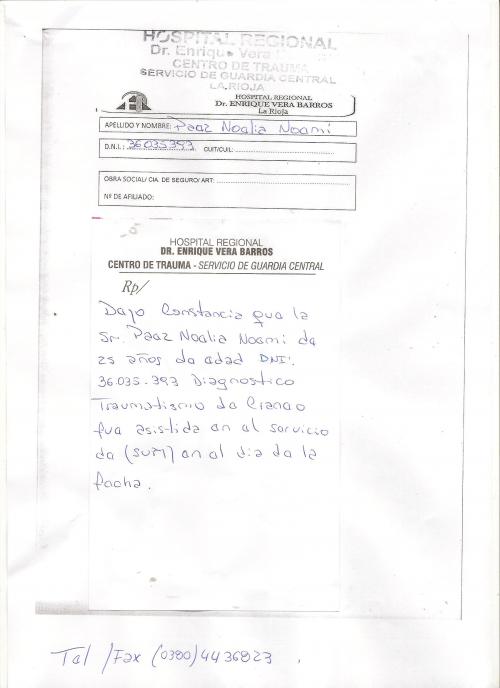 HOSPITAL REGIONAL
Dr. Enrique Vera
CENTRO DE TRAUMA
SERVICIO DE GUARDIA CENTRAL
LA RIOJA
HOSPITAL REGIONAL
Dr. ENRIQUE VERA BARROS
La Rioja
APELLIDO Y NOMBRE: Paaz Noalia Noami
D.N.I.: 36035393 CUIT/CUIL:
OBRA SOCIAL/ CIA. DE SEGURO/ ART:
Nº DE AFILIADO:
HOSPITAL REGIONAL
DR. ENRIQUE VERA BARROS
CENTRO DE TRAUMA - SERVICIO DE GUARDIA CENTRAL
Rp/
Dajo Constancia qua la
Sr. Paaz Noalia Noami da
25 años da adad DNI:
36.035.393 Diagnostico
Traumatismo da Cranao
fua asistida an al sarvicio
da (SUM) an al dia da la
facha.
Tal /Fax (0380) 4436823